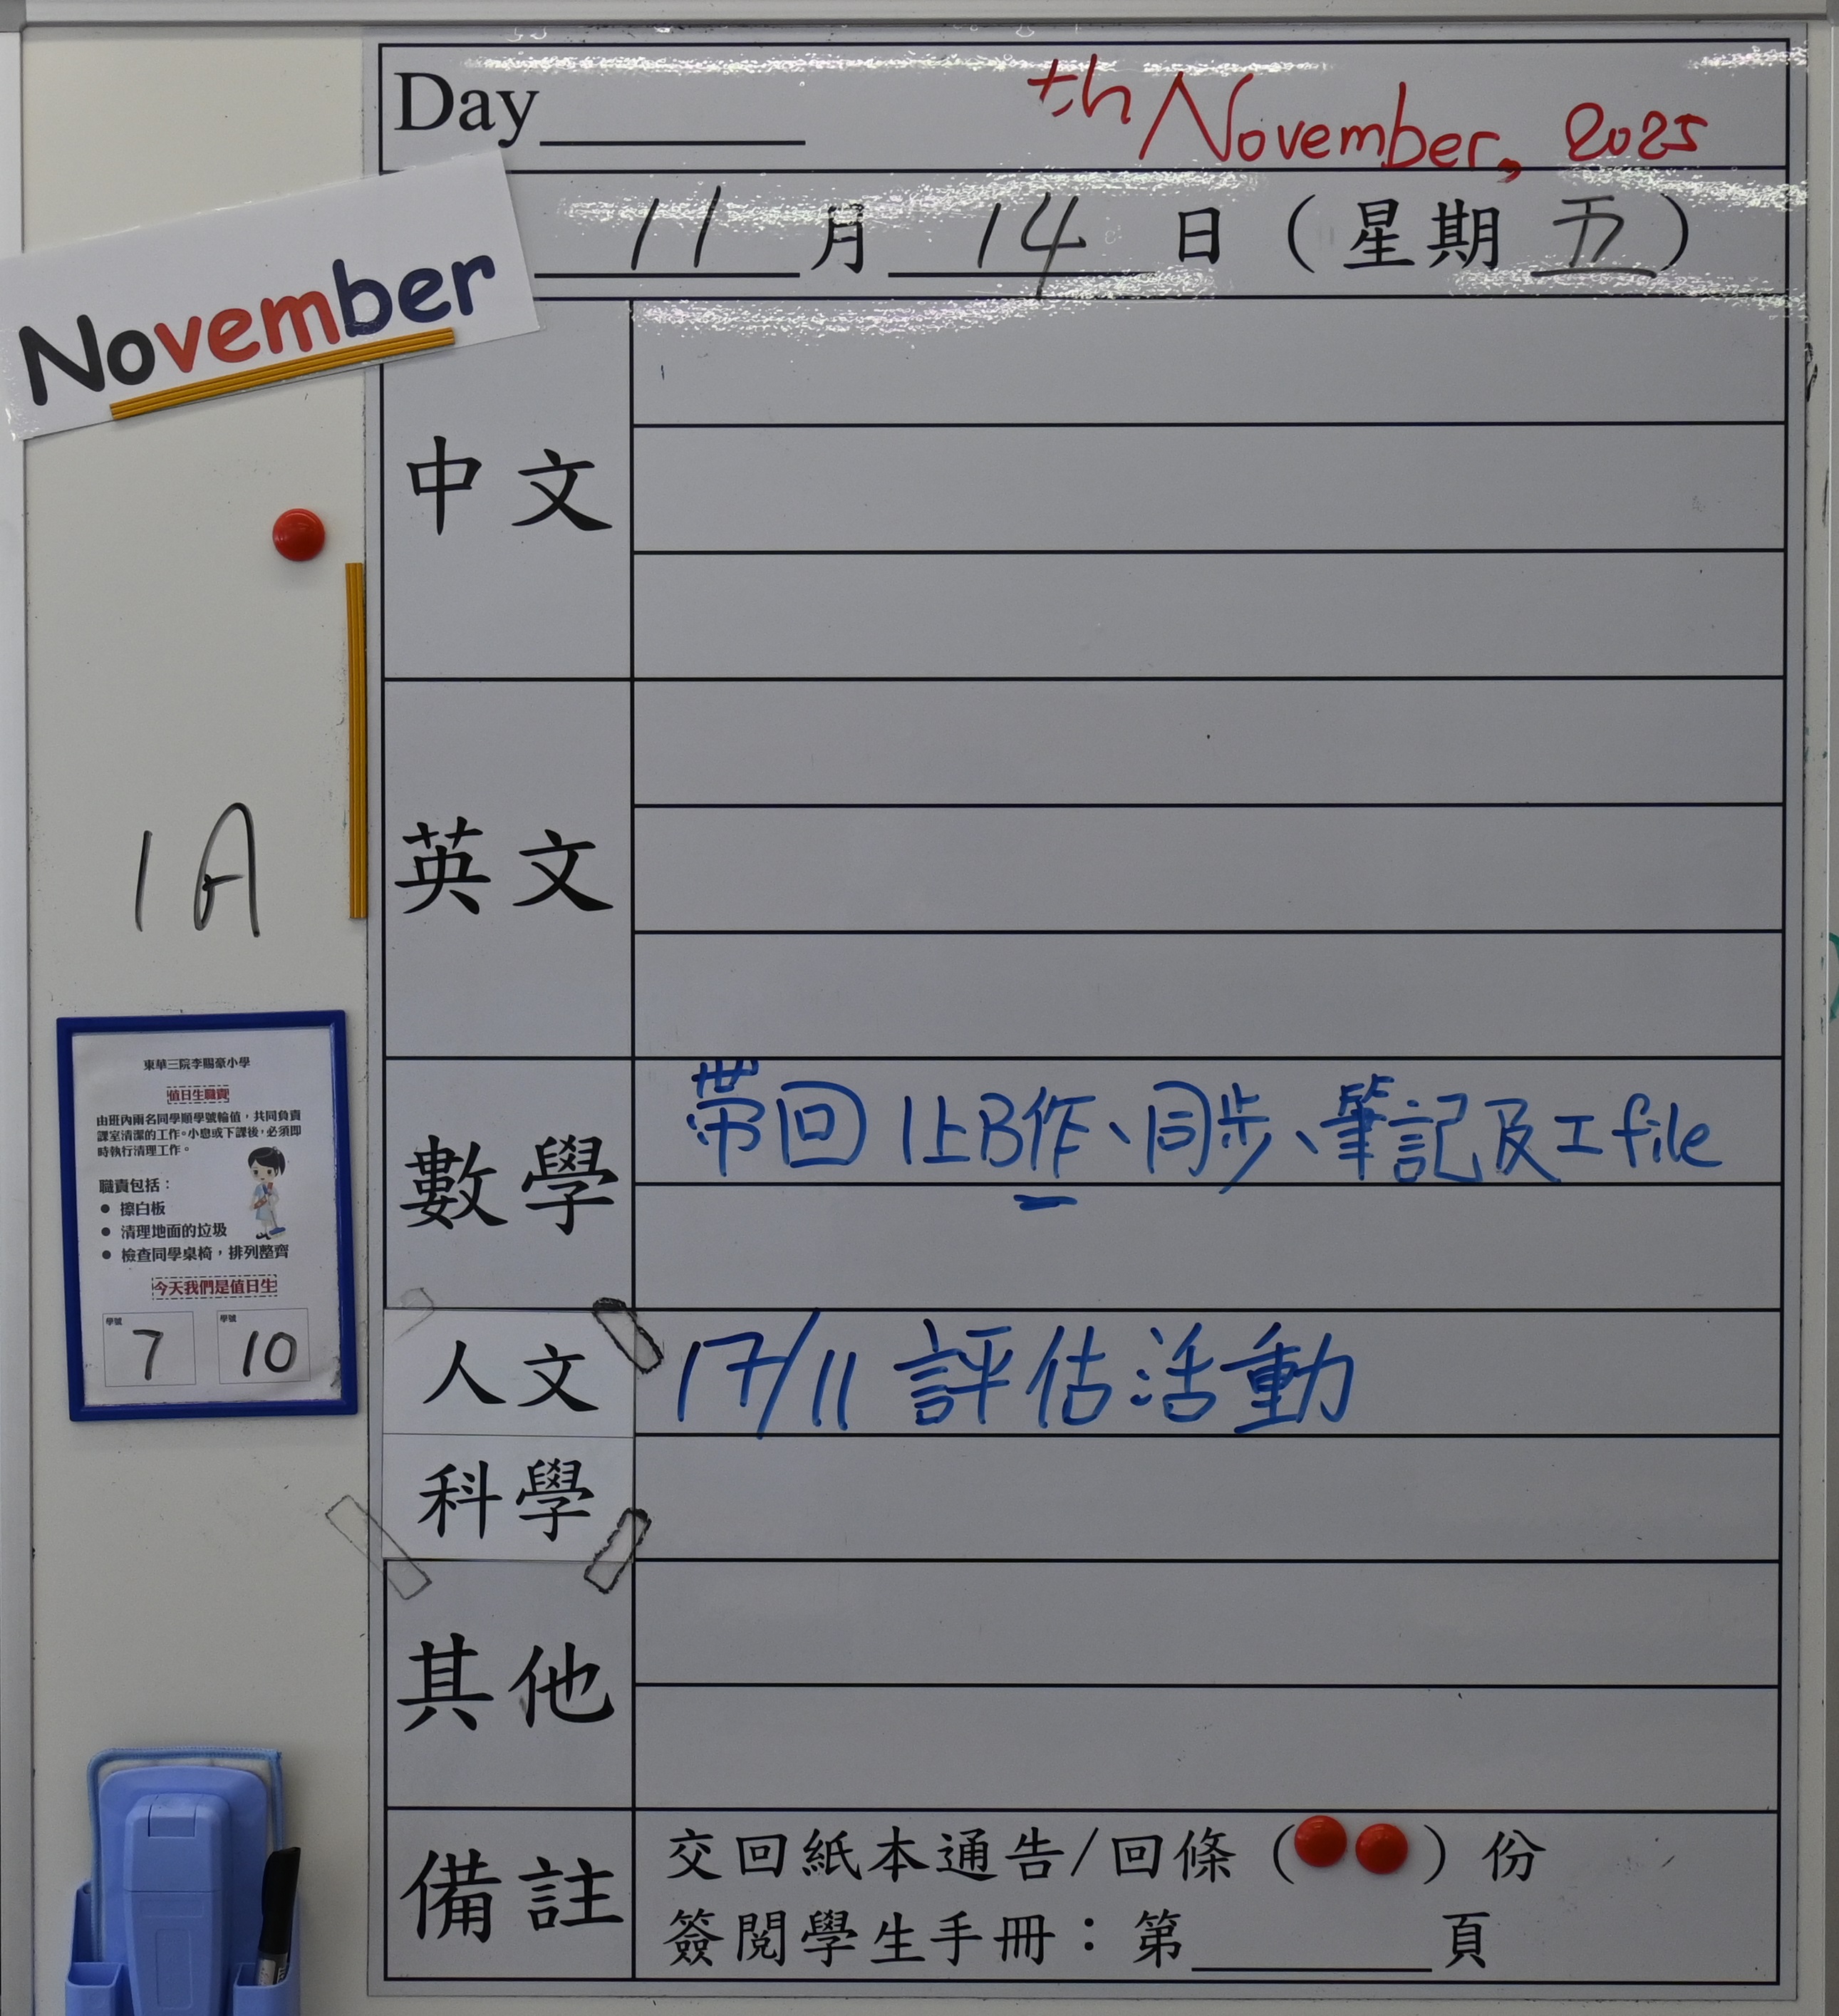 Day
th November, 2025
November
11 月 14 日 (星期 五)
中文
英文
1A
數學
帶回 1上B作、同步、筆記及工file
人文
17/11 評估活動
科學
其他
備註
交回紙本通告/回條 ( ) 份
簽閱學生手冊：第 頁
東華三院李賜豪小學
值日生職責
由班內兩名同學順學號輪值，共同負責
課室清潔的工作。小息或下課後，必須即
時執行清理工作。
職責包括：
● 擦白板
● 清理地面的垃圾
● 檢查同學桌椅，排列整齊
今天我們是值日生
學號 7
學號 10